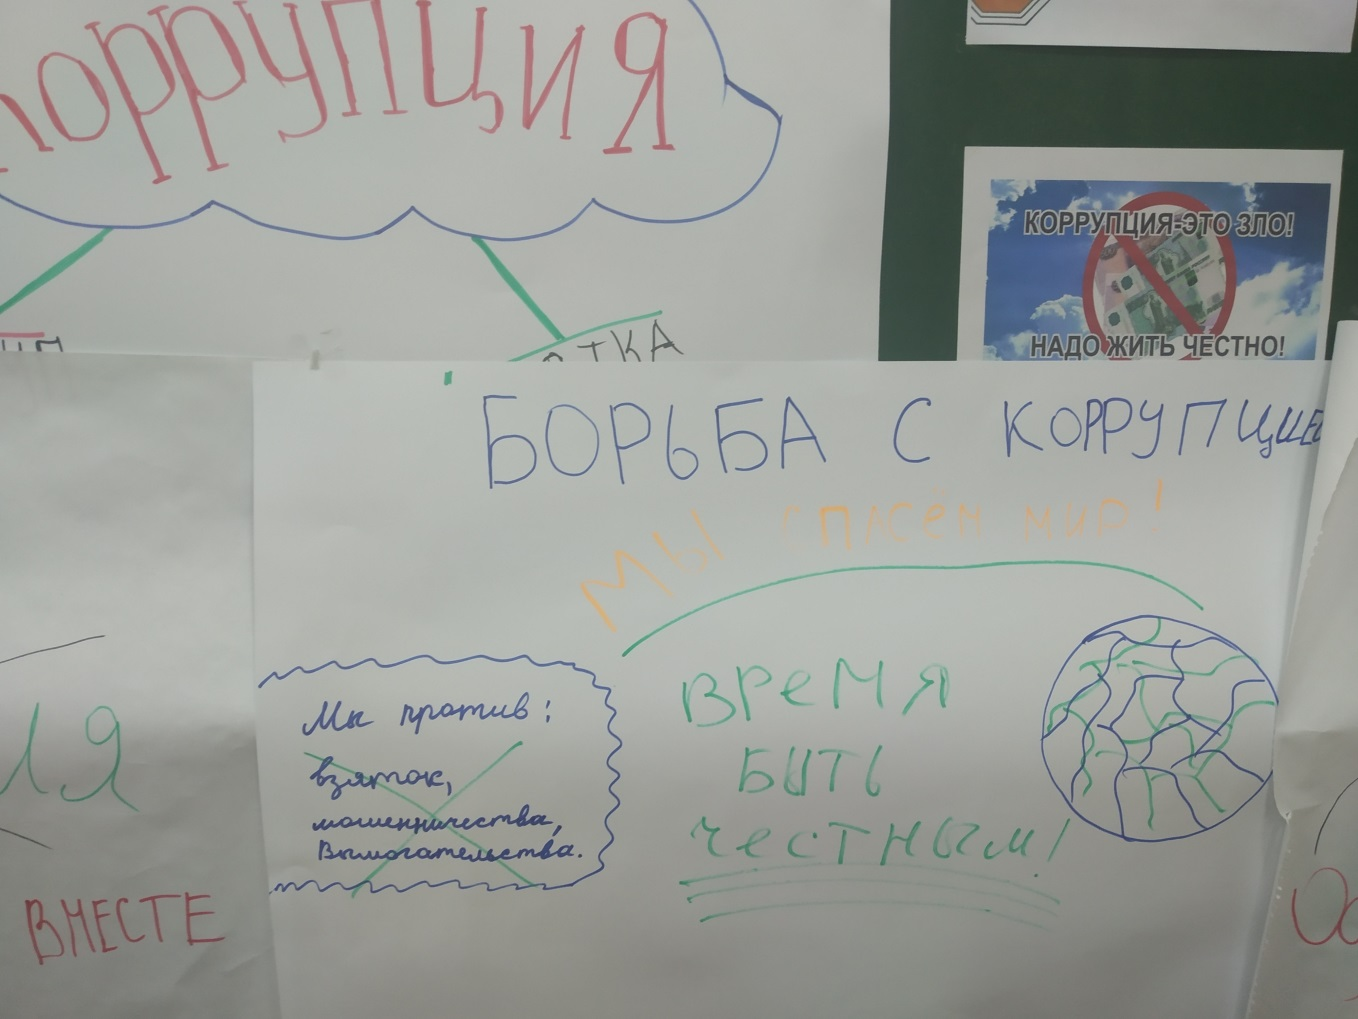 Коррупция
КОРРУПЦИЯ-ЭТО ЗЛО!
НАДО ЖИТЬ ЧЕСТНО!
БОРЬБА С КОРРУПЦИЕ
МЫ СПАСЁМ МИР!
Мы против:
взяток,
мошенничества,
Вымогательства.
ВРЕМЯ
БЫТЬ
ЧЕСТНЫМ!
ВМЕСТЕ